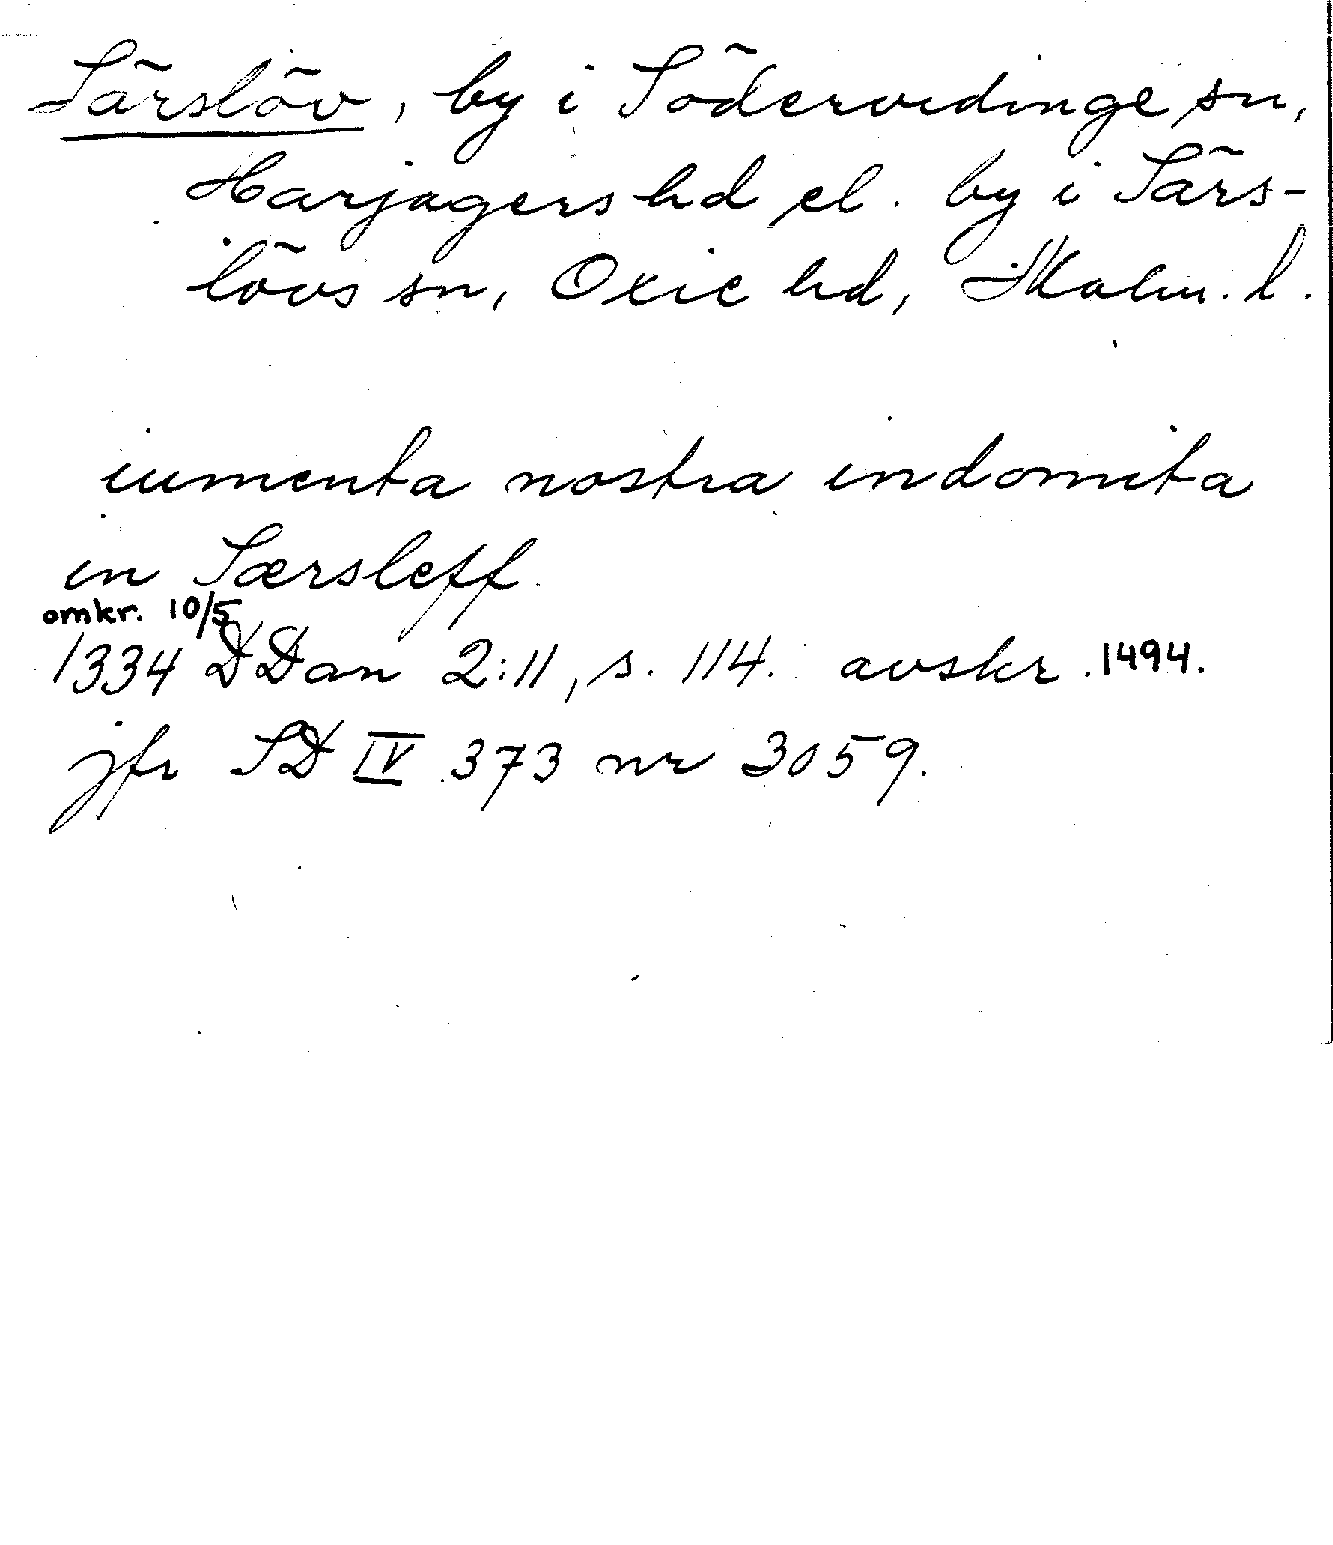 Särslöv, by i Södervidinge sn,
Harjagers hd el. by i Särs-
lövs sn, Oxie hd, Malm. l.
iumenta nostra indomita
in Særsleff.
omkr. 10/5
1334 DDan 2:11, s. 114. avskr. 1494.
jfr SD IV 373 nr 3059.